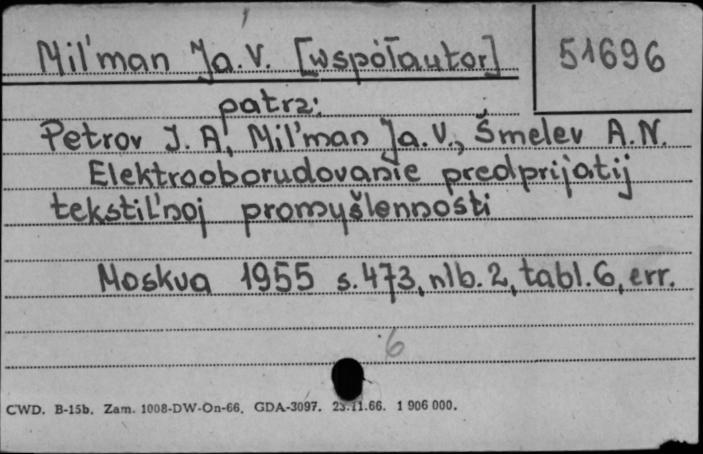 Mil'man Ja. V. [współautor]
51696
patrz:
Petrov I. A., Mil'man Ja. V., Šmelev A. N.
Elektrooborudovanie predprijatij
tekstil'noj promyšlennosti
Moskva 1955 s. 473, nlb. 2, tabl. 6, err.
6
CWD. B-15b. Zam. 1008-DW-On-66. GDA-3097. 23.11.66. 1 906 000.